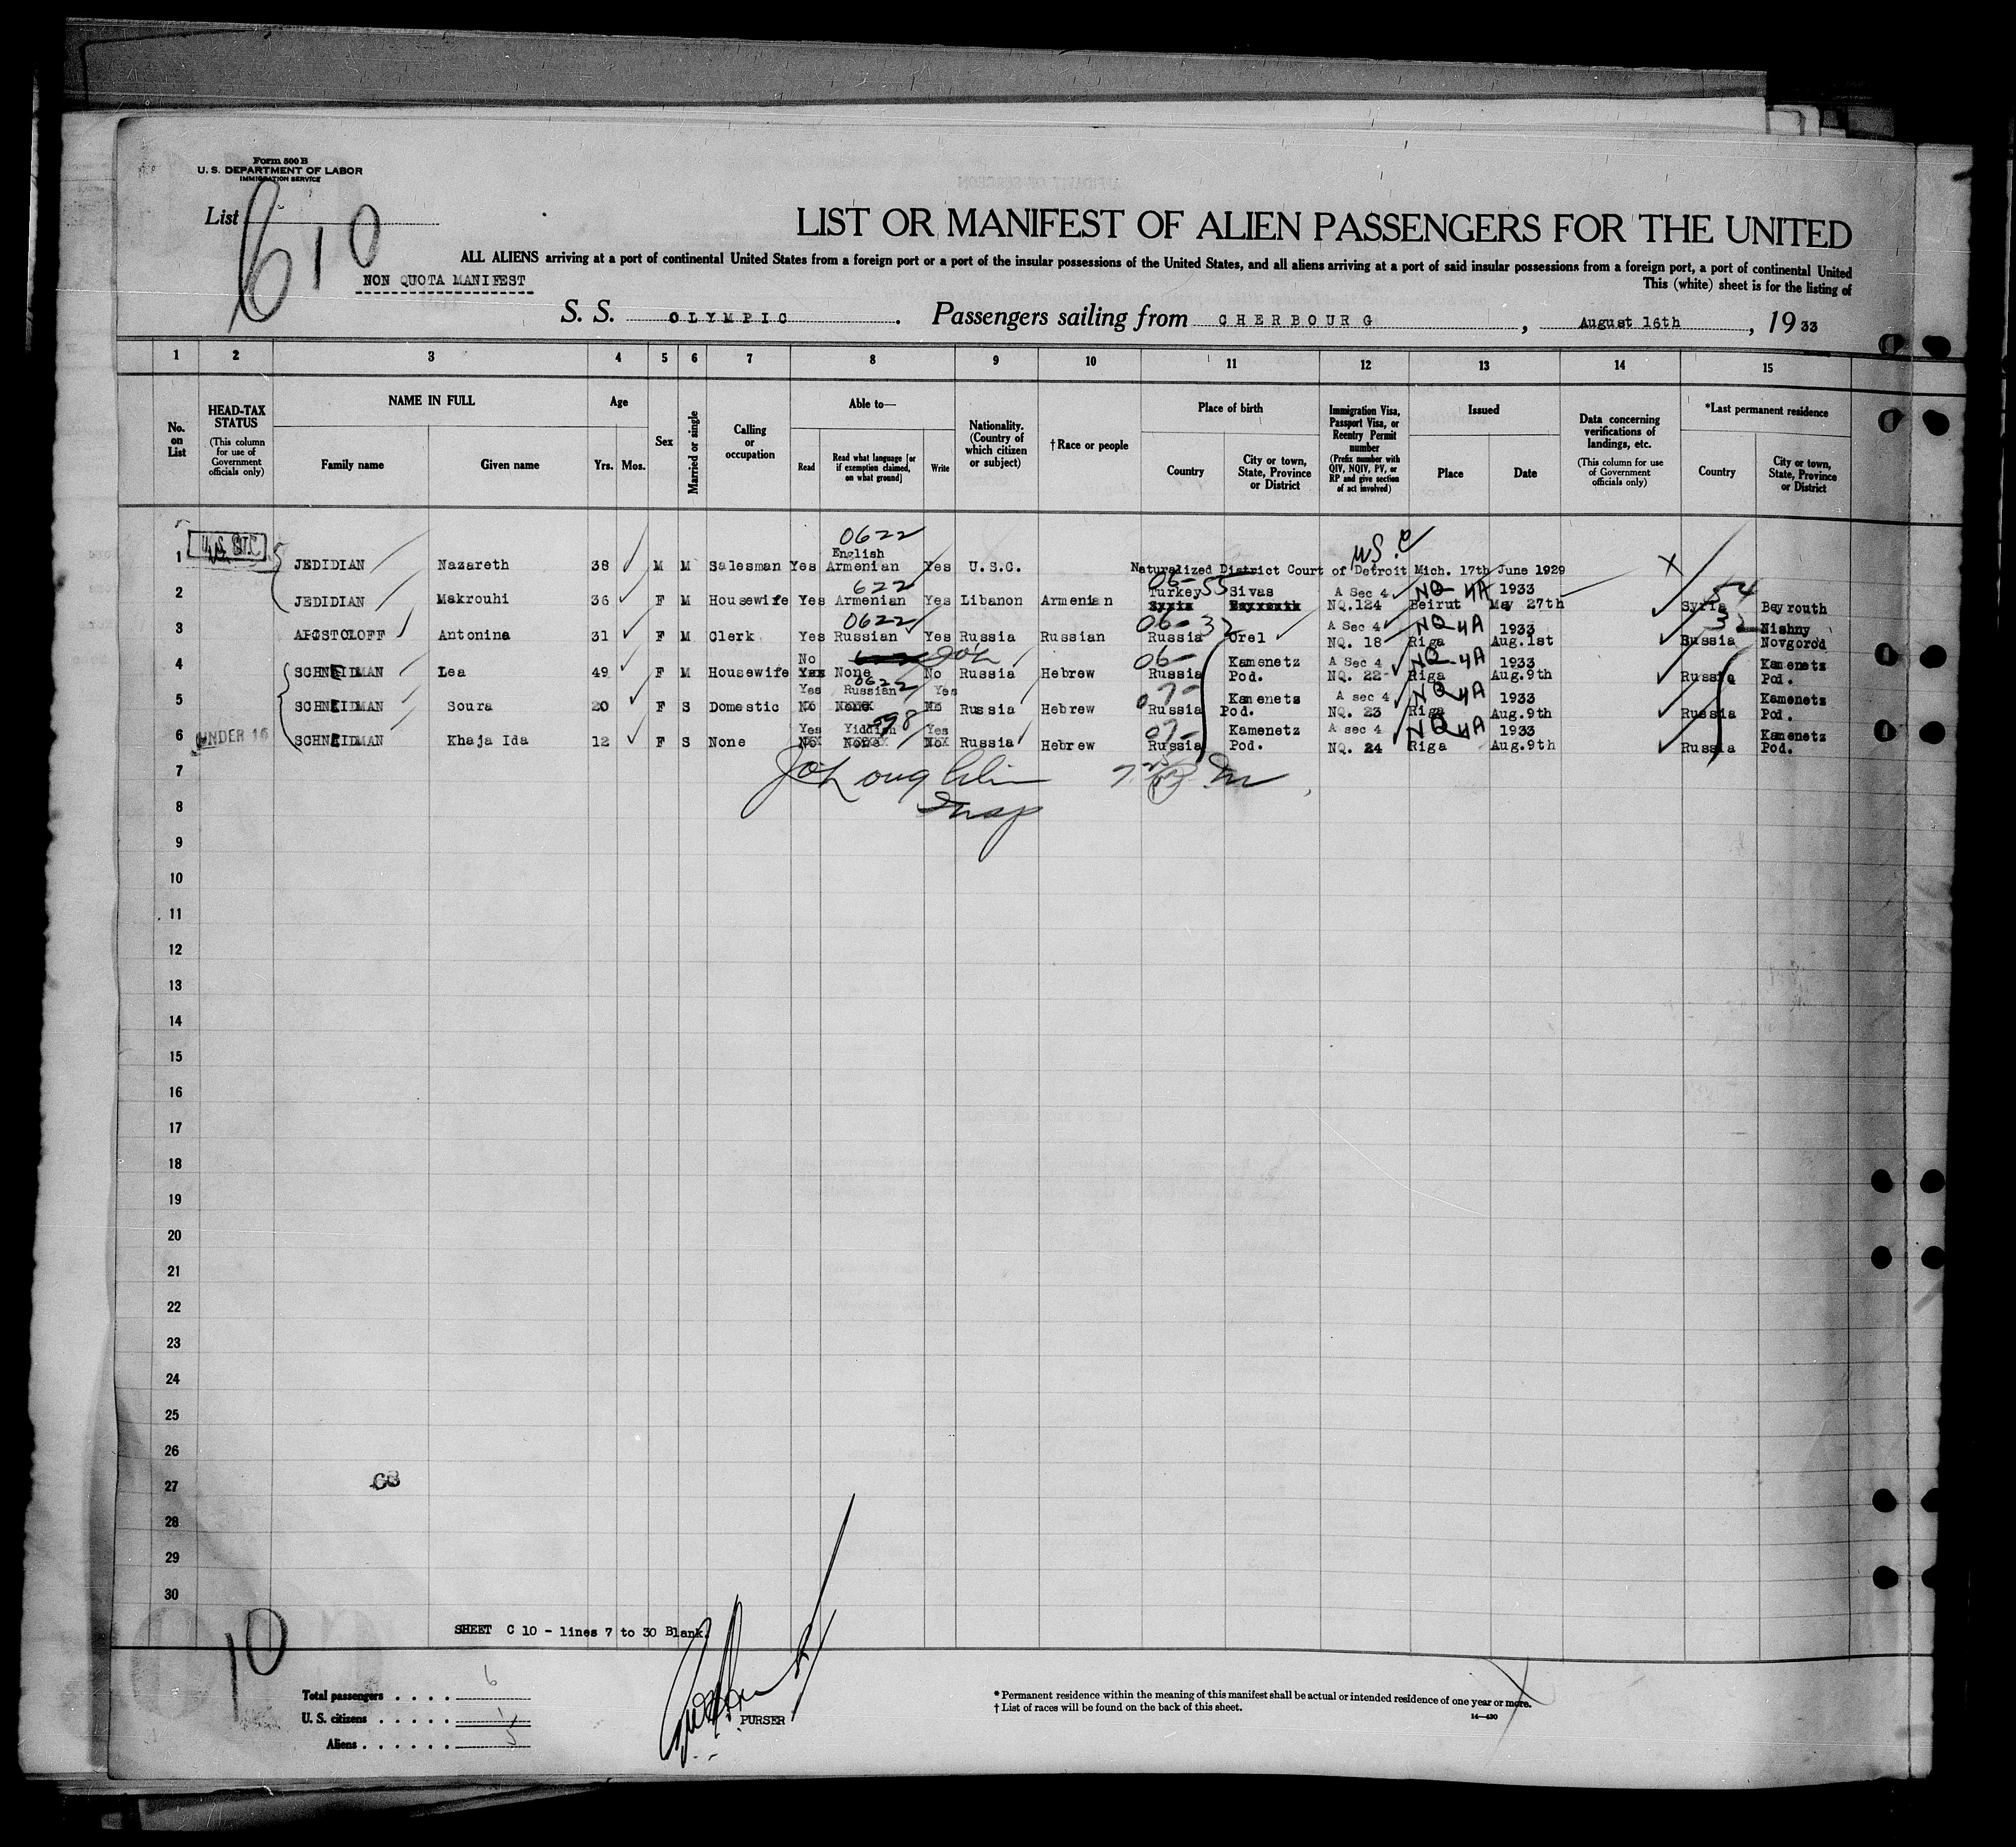 Form 500 B
U. S. DEPARTMENT OF LABOR
IMMIGRATION SERVICE
List 610
LIST OR MANIFEST OF ALIEN PASSENGERS FOR THE UNITED
ALL ALIENS arriving at a port of continental United States from a foreign port or a port of the insular possessions of the United States, and all aliens arriving at a port of said insular possessions from a foreign port, a port of continental United
NON QUOTA MANIFEST
This (white) sheet is for the listing of
S. S. OLYMPIC. Passengers sailing from CHERBOURG, August 16th, 1933
1 2 3 4 5 6 7 8 9 10 11 12 13 14 15
No. on List
HEAD-TAX STATUS (This column for use of Government officials only)
NAME IN FULL
Family name Given name
Age
Yrs. Mos.
Sex
Married or single
Calling or occupation
Able to—
Read
Read what language [or if exemption claimed, on what ground]
Write
Nationality. (Country of which citizen or subject)
†Race or people
Place of birth
Country
City or town, State, Province or District
Immigration Visa, Passport Visa, or Reentry Permit number (Prefix number with QIV, NQIV, PV, or RP and give section of act involved)
Issued
Place Date
Data concerning verifications of landings, etc. (This column for use of Government officials only)
*Last permanent residence
Country
City or town, State, Province or District
0622
U.S.C
English
1 JEDIDIAN Nazareth 38 M M Salesman Yes Armenian Yes U.S.C. Naturalized District Court of Detroit Mich. 17th June 1929 X
622 06-55 NQ 4A 54
Turkey Sivas A Sec 4 1933
2 JEDIDIAN Makrouhi 36 F M Housewife Yes Armenian Yes Libanon Armenian NQ.124 Beirut May 27th Syria Beyrouth
0622 06-32 NQ 4A 32
A Sec 4 1933 Nishny
3 APOSTOLOFF Antonina 31 F M Clerk Yes Russian Yes Russia Russian Russia Orel NQ. 18 Riga Aug.1st Russia Novgorod
No 06- Kamenetz A Sec 4 NQ-4A 1933 Kamenetz
4 SCHNEIDMAN Lea 49 F M Housewife Yes None No Russia Hebrew Russia Pod. NQ. 22 Riga Aug.9th Russia Pod.
0622
Yes Russian Yes 07- Kamenetz A sec 4 NQ 4A 1933 Kamenetz
5 SCHNEIDMAN Soura 20 F S Domestic No None No Russia Hebrew Russia Pod. NQ. 23 Riga Aug.9th Russia Pod.
598
Yes Yiddish Yes 07- Kamenetz A sec 4 NQ 4A 1933 Kamenetz
6 UNDER 16 SCHNEIDMAN Khaja Ida 12 F S None No None No Russia Hebrew Russia Pod. NQ. 24 Riga Aug.9th Russia Pod.
7
8 Insp
9
10
11
12
13
14
15
16
17
18
19
20
21
22
23
24
25
26
27
28
29
30
SHEET C 10 - lines 7 to 30 Blank.
10
Total passengers . . . . 6
U. S. citizens . . . . . 1
Aliens . . . . . . 5
PURSER
* Permanent residence within the meaning of this manifest shall be actual or intended residence of one year or more.
† List of races will be found on the back of this sheet.
14—430